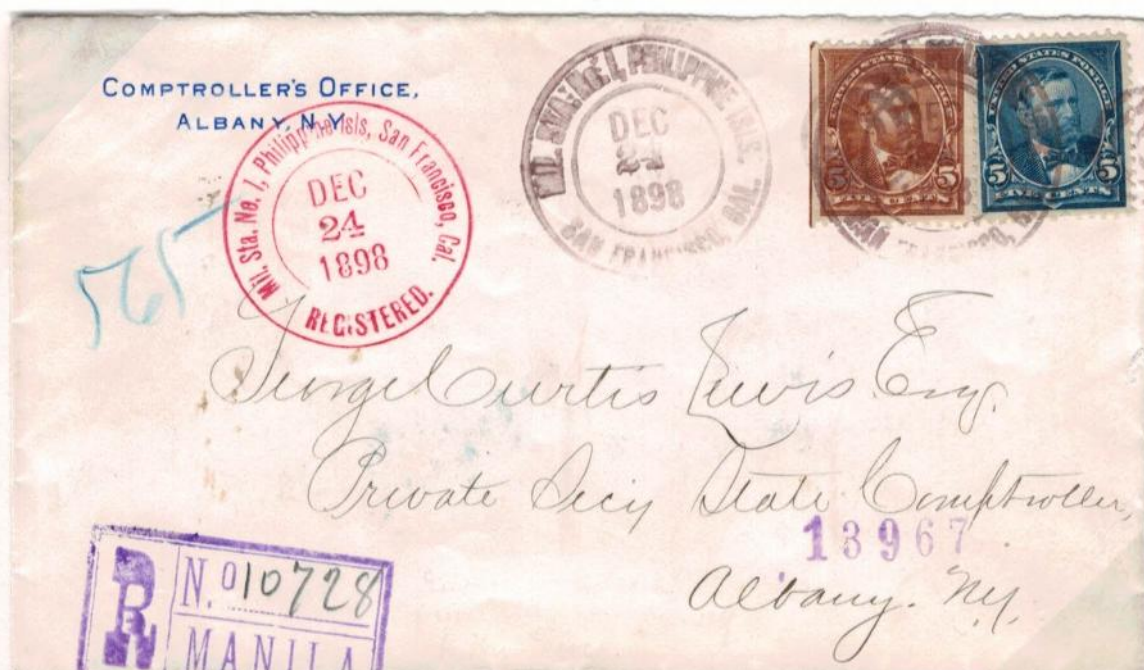 COMPTROLLER'S OFFICE,
ALBANY, N.Y.
Mil. Sta. No. 1, Philippine Isls, San Francisco, Cal.
DEC
24
1898
REGISTERED.
MIL. STA. NO. 1, PHILIPPINE ISLS.
DEC
24
1898
SAN FRANCISCO, CAL.
UNITED STATES POSTAGE
5 5
FIVE CENTS
UNITED STATES POSTAGE
5 5
FIVE CENTS
SAN FRANCISCO,
565
George Curtis Lewis Esq.
Private Secy State Comptroller,
13967
Albany. N.Y.
R
No 10728
MANILA